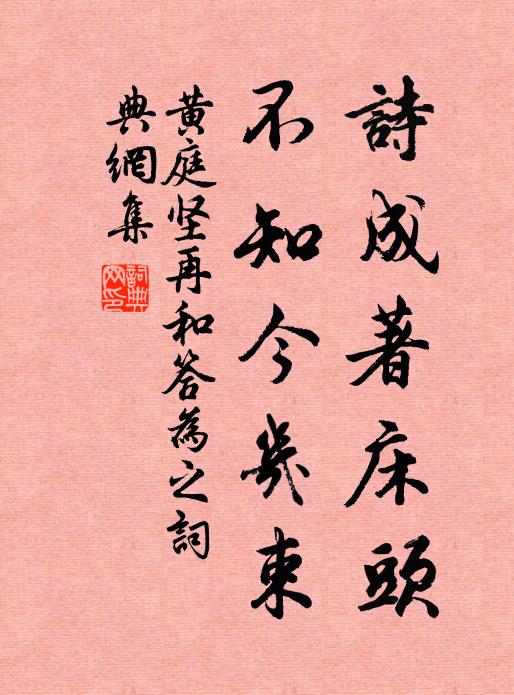 詩成著床頭
不知今幾束
黄庭坚再和答為之詞
典網集
詞典網印